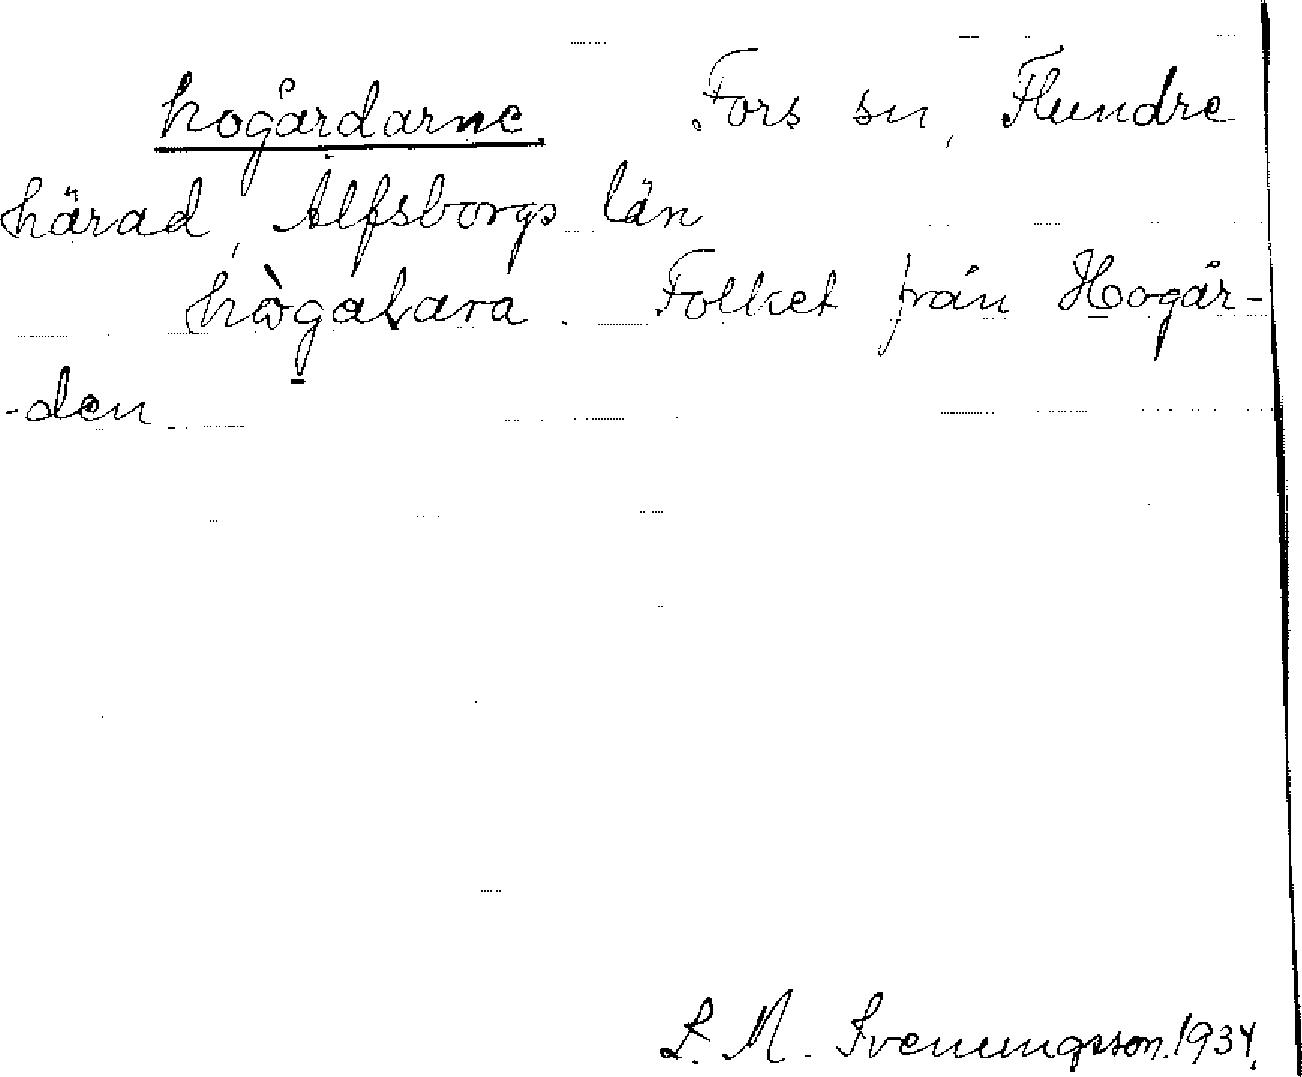 hogårdarne. Fors sn, Flundre
härad, Älfsborgs län
hògaɫara. Folket från Hogår-
-den
L. M. Svenungsson. 1934.